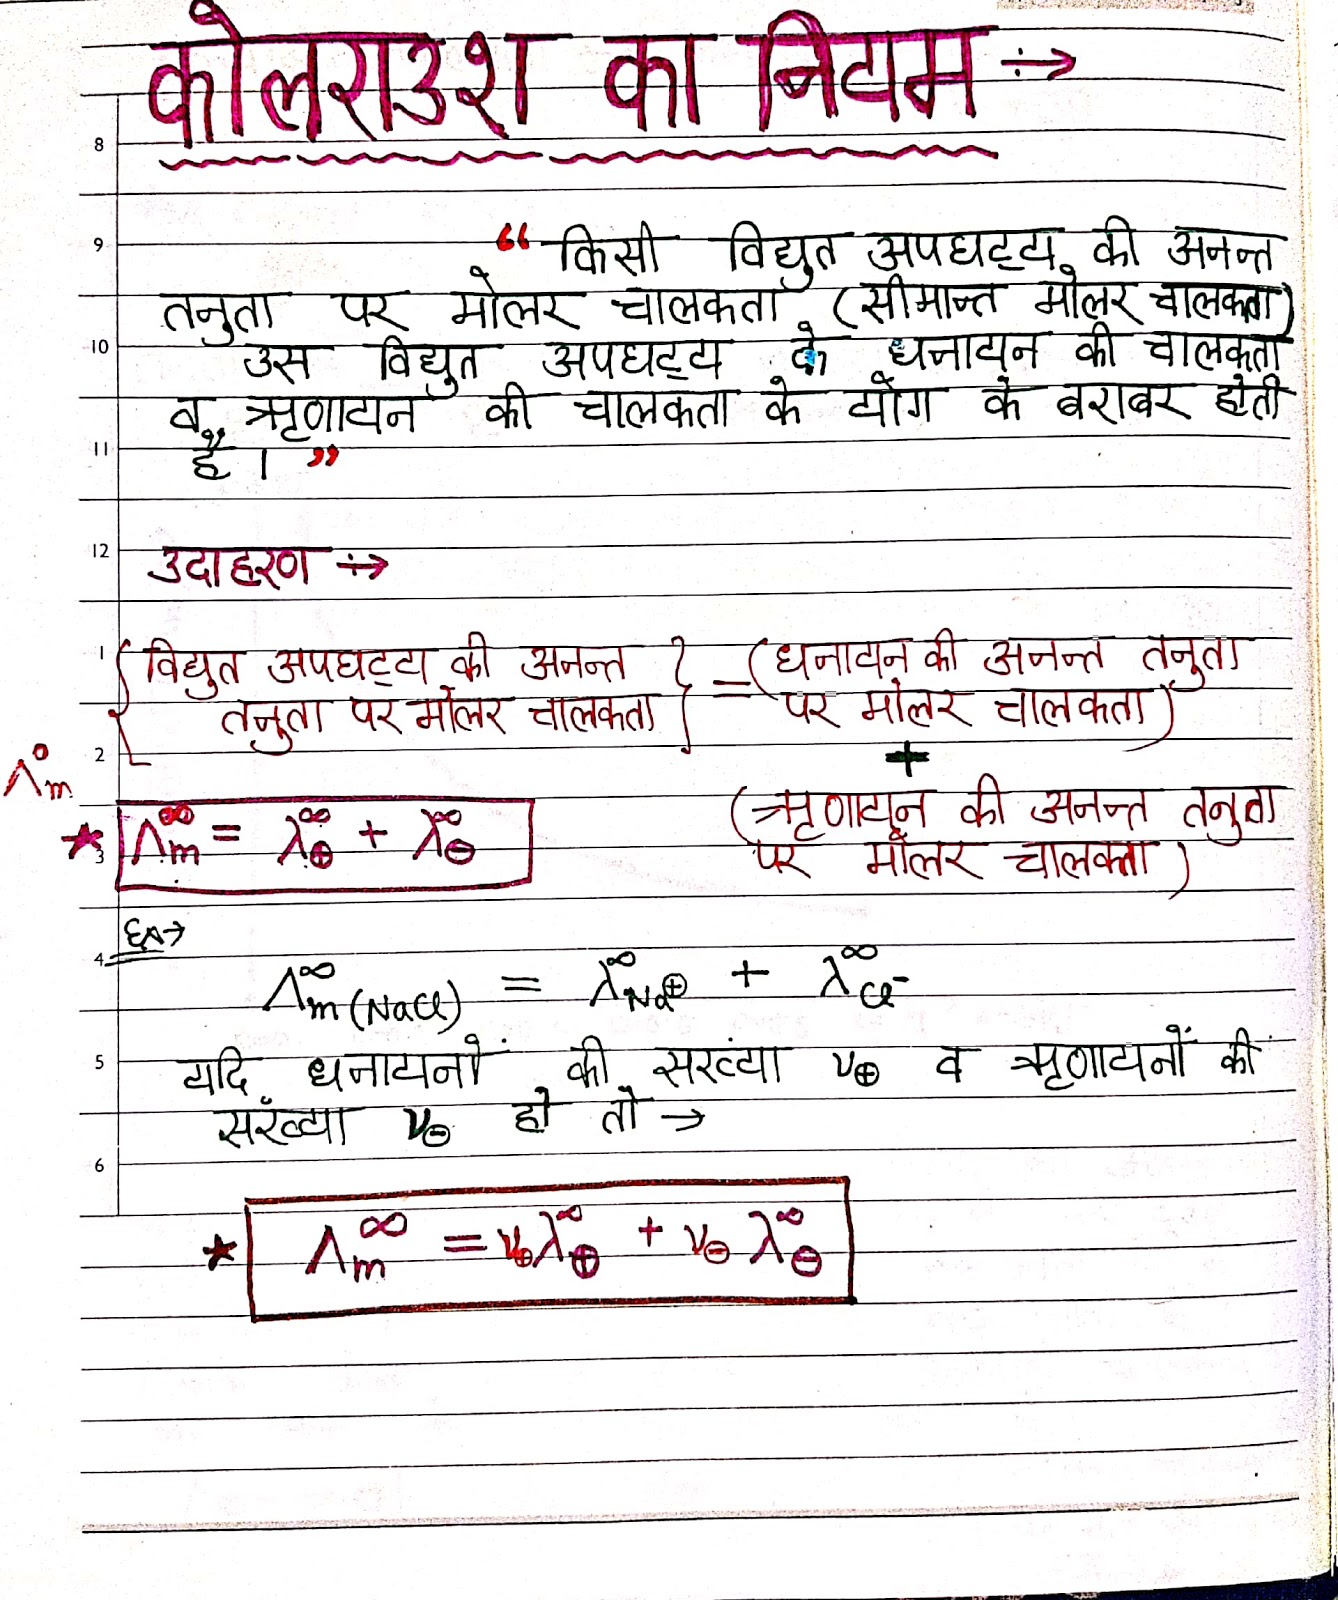 कोलराउश का नियम ÷→
8
9 “ किसी विद्युत अपघट्टय की अनन्त
तनुता पर मोलर चालकता (सीमान्त मोलर चालकता)
10 उस विद्युत अपघट्टय के धनायन की चालकता
व ऋणायन की चालकता के योग के बराबर होती
11 है । ”
12 उदाहरण ÷→
1 { विद्युत अपघट्टय की अनन्त } = (धनायन की अनन्त तनुता
तनुता पर मोलर चालकता पर मोलर चालकता)
2 +
Λ°m
(ऋणायन की अनन्त तनुता
पर मोलर चालकता)
★ 3 Λ∞m = λ∞⊕ + λ∞⊖
Ex→
4 Λ∞m(NaCl) = λ∞Na⊕ + λ∞Cl-
5 यदि धनायनों की संख्या ν⊕ व ऋणायनों की
संख्या ν⊖ हो तो →
6
★ Λm∞ = ν⊕λ∞⊕ + ν⊖ λ∞⊖